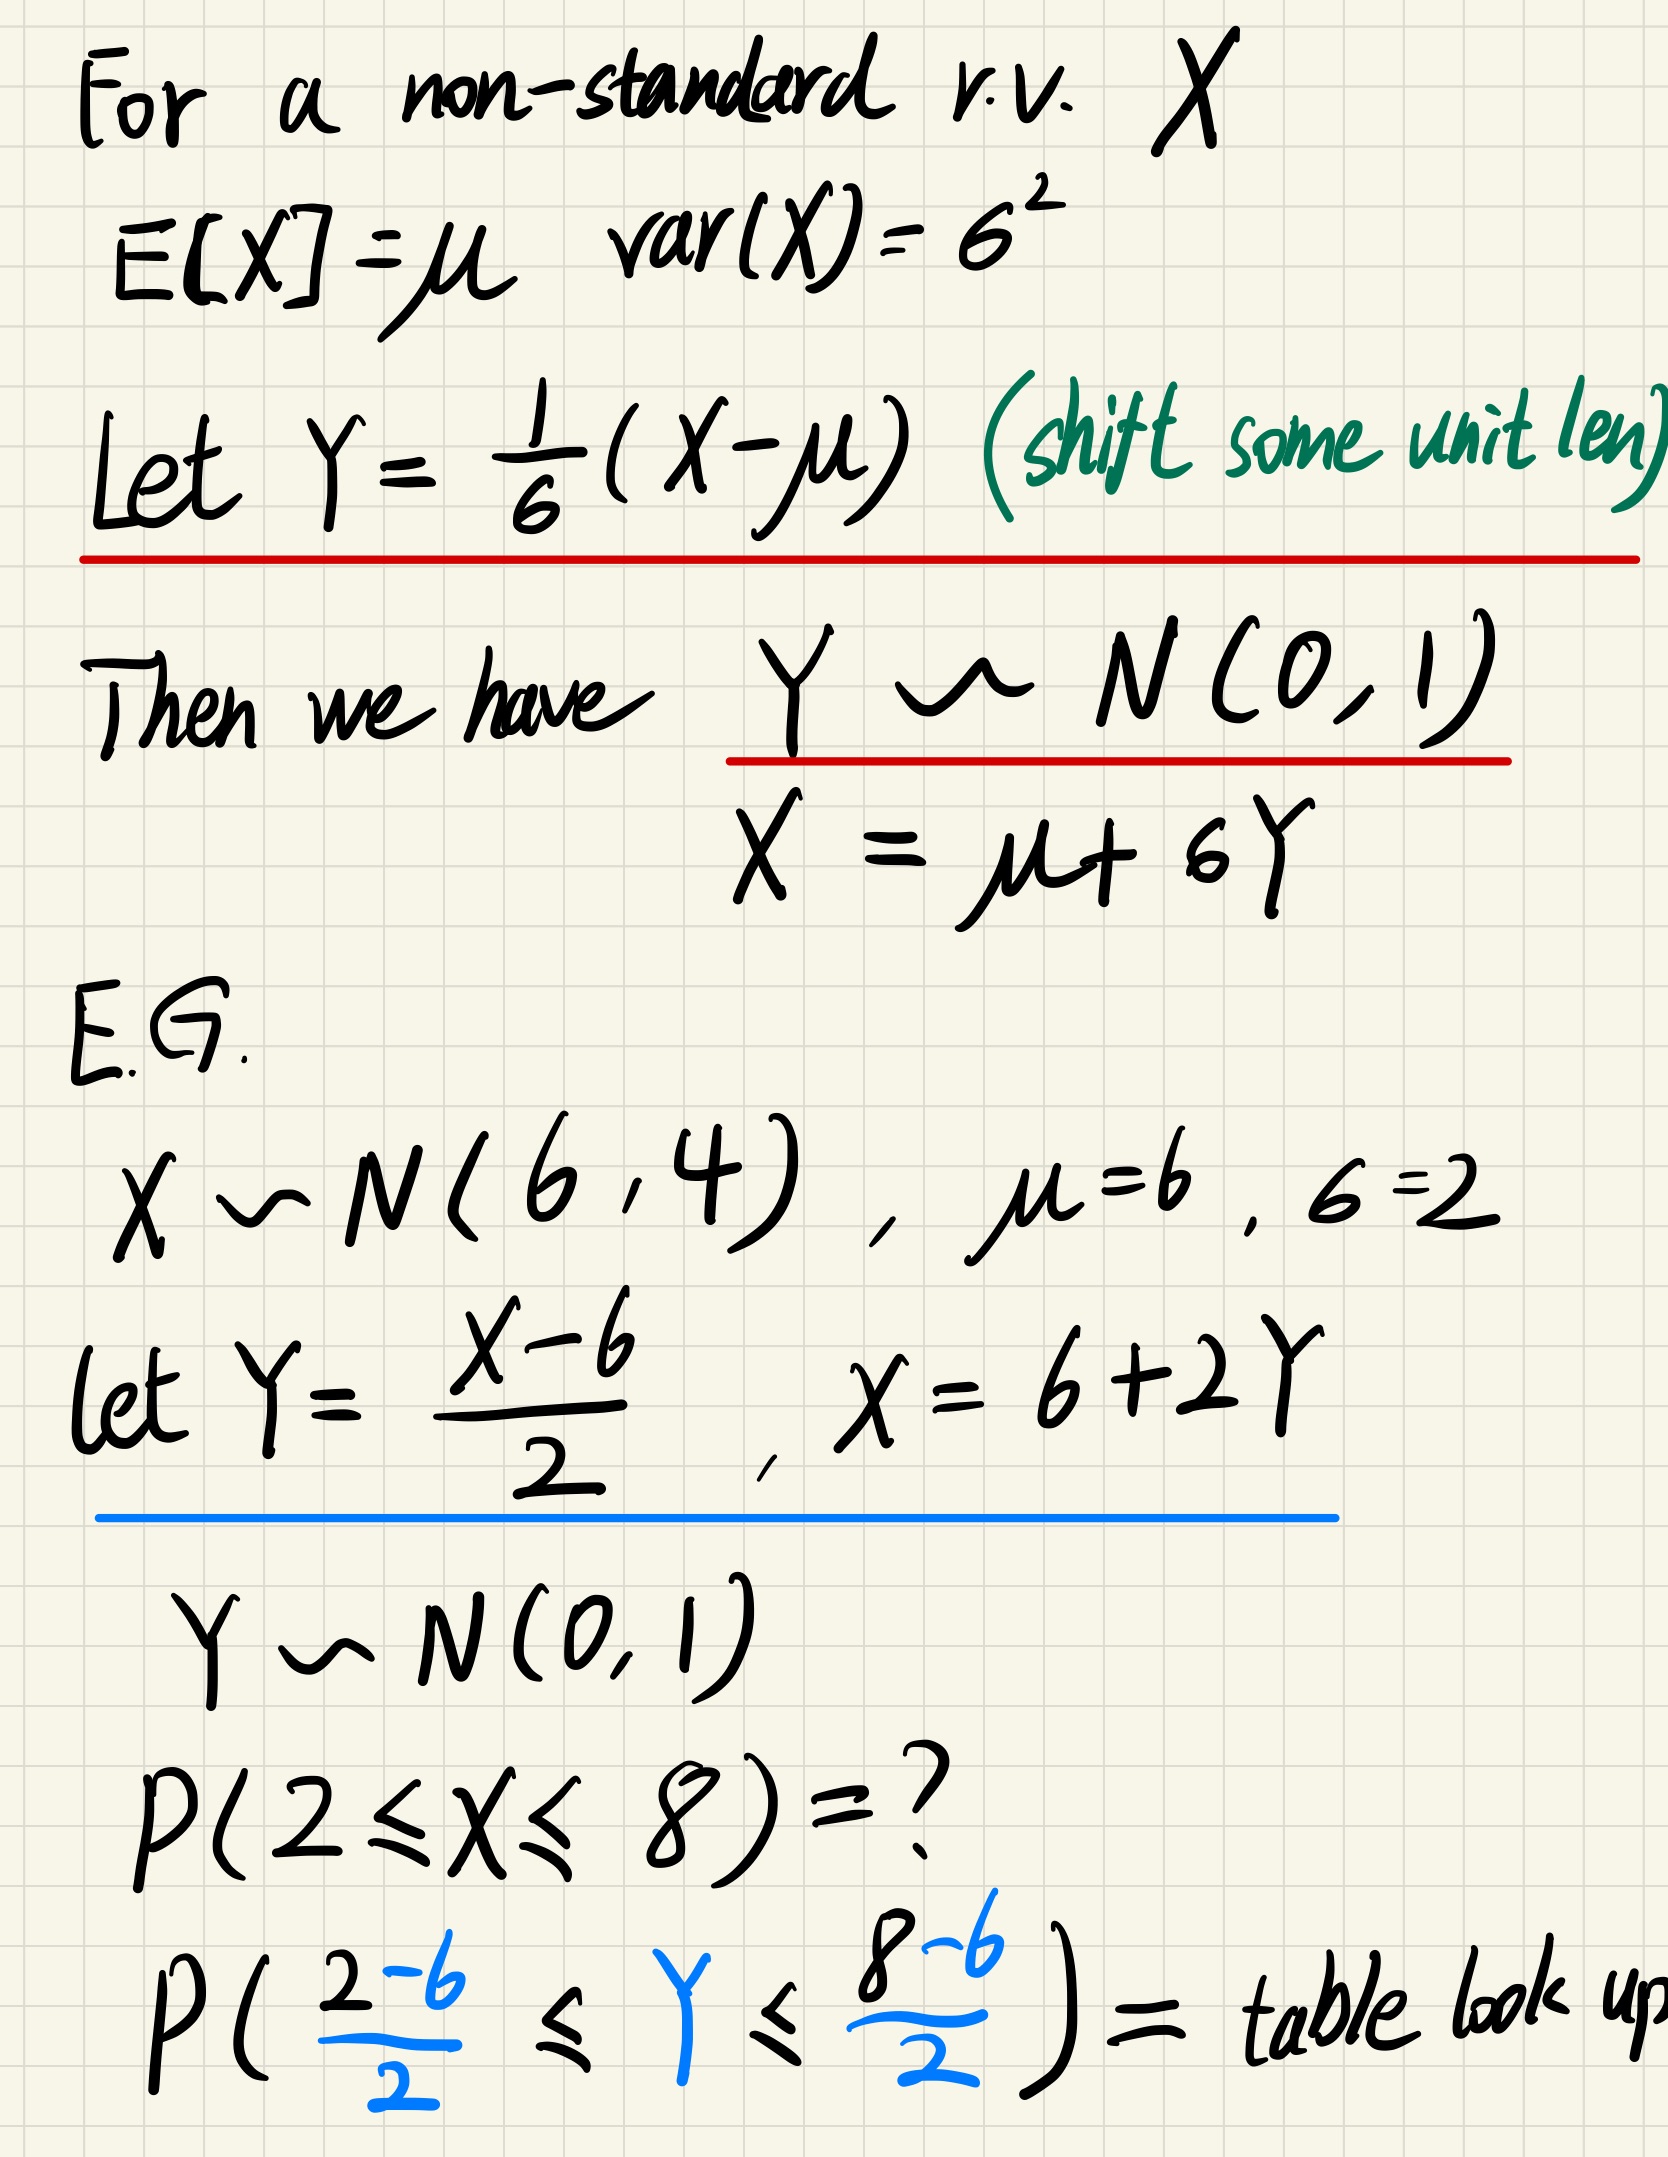 For a non-standard r.v. X
E[X] = μ var(X) = σ²
Let Y = 1/σ (X-μ) (shift some unit len)
Then we have Y ~ N(0, 1)
X = μ + σY
E.G.
X ~ N(6, 4), μ=6, σ=2
let Y = (X-6)/2, X = 6+2Y
Y ~ N(0, 1)
P(2 ≤ X ≤ 8) = ?
P((2-6)/2 ≤ Y ≤ (8-6)/2) = table look up